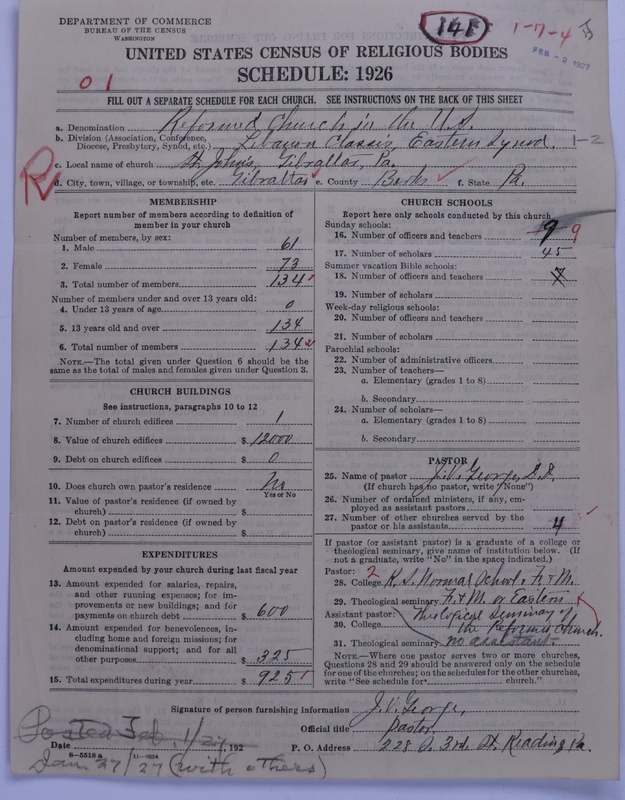 DEPARTMENT OF COMMERCE
BUREAU OF THE CENSUS
WASHINGTON
141
1-7-4
FEB -2 1927
UNITED STATES CENSUS OF RELIGIOUS BODIES
SCHEDULE: 1926
0 1
FILL OUT A SEPARATE SCHEDULE FOR EACH CHURCH. SEE INSTRUCTIONS ON THE BACK OF THIS SHEET
a. Denomination Reformed Church in the U.S.
b. Division (Association, Conference, Diocese, Presbytery, Synod, etc.) Lebanon Classis, Eastern Synod. 1-2
c. Local name of church St. John's, Gibraltar, Pa.
R
d. City, town, village, or township, etc. Gibraltar e. County Berks f. State Pa.
MEMBERSHIP
Report number of members according to definition of
member in your church
Number of members, by sex:
1. Male 61
2. Female 73
3. Total number of members 134
Number of members under and over 13 years old:
4. Under 13 years of age 0
5. 13 years old and over 134
6. Total number of members 134
NOTE.—The total given under Question 6 should be the
same as the total of males and females given under Question 3.
CHURCH BUILDINGS
See instructions, paragraphs 10 to 12
7. Number of church edifices 1
8. Value of church edifices $ 12000
9. Debt on church edifices $ 0
10. Does church own pastor's residence No
Yes or No
11. Value of pastor's residence (if owned by
church) $
12. Debt on pastor's residence (if owned by
church) $
EXPENDITURES
Amount expended by church during last fiscal year
13. Amount expended for salaries, repairs,
and other running expenses; for im-
provements or new buildings; and for
payments on church debt $ 600
14. Amount expended for benevolences, in-
cluding home and foreign missions; for
denominational support; and for all
other purposes $ 325
15. Total expenditures during year $ 925
CHURCH SCHOOLS
Report here only schools conducted by this church
Sunday schools:
16. Number of officers and teachers 9 9
17. Number of scholars 45
Summer vacation Bible schools:
18. Number of officers and teachers
19. Number of scholars
Week-day religious schools:
20. Number of officers and teachers
21. Number of scholars
Parochial schools:
22. Number of administrative officers
23. Number of teachers—
a. Elementary (grades 1 to 8)
b. Secondary
24. Number of scholars—
a. Elementary (grades 1 to 8)
b. Secondary
PASTOR
25. Name of pastor J.V. George, D.D.
(If church has no pastor, write "None")
26. Number of ordained ministers, if any, em-
ployed as assistant pastors
27. Number of other churches served by the
pastor or his assistants 4
If pastor (or assistant pastor) is a graduate of a college or
theological seminary, give name of institution below. (If
not a graduate, write "No" in the space indicated.)
Pastor: 2
28. College K. S. Normal School, F. & M.
29. Theological seminary F. & M. or Eastern
Assistant pastor: Theological Seminary of
30. College the Reformed Church.
31. Theological seminary no assistant.
NOTE.—Where one pastor serves two or more churches,
Questions 28 and 29 should be answered only on the schedule
for one of the churches; on the schedules for the other churches,
write "See schedule for church."
Signature of person furnishing information J. V. George,
Official title Pastor.
Posted Feb. 1/27
Date , 192 P. O. Address 228 S. 3rd. St. Reading Pa.
8—5518 a 11—9054
Jan. 27/27 (with others)